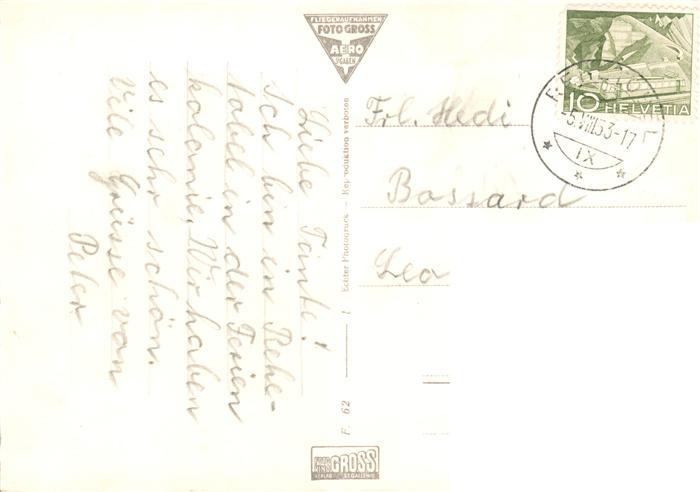 Liebe Tante!
Ich bin in Rehe-
tobel in der Ferien
kolonie. Wir haben
es sehr schön.
Vile Grüsse von
Peter
FLIEGERAUFNAHMEN
FOTO GROSS
AERO
ST. GALLEN
Echter Photodruck — Reproduktion verboten
F. 62
GROSS
ST. GALLEN
Frl. Hedi
Bossard
Lea
10 HELVETIA
-5.VIII.53-17
IX